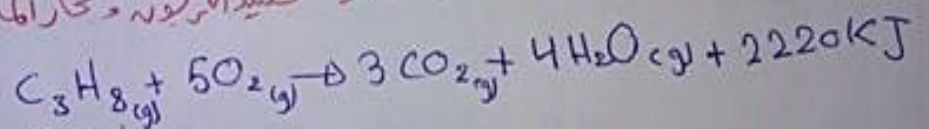 C₃H₈(g) + 5O₂(g) → 3CO₂(g) + 4H₂O(g) + 2220KJ